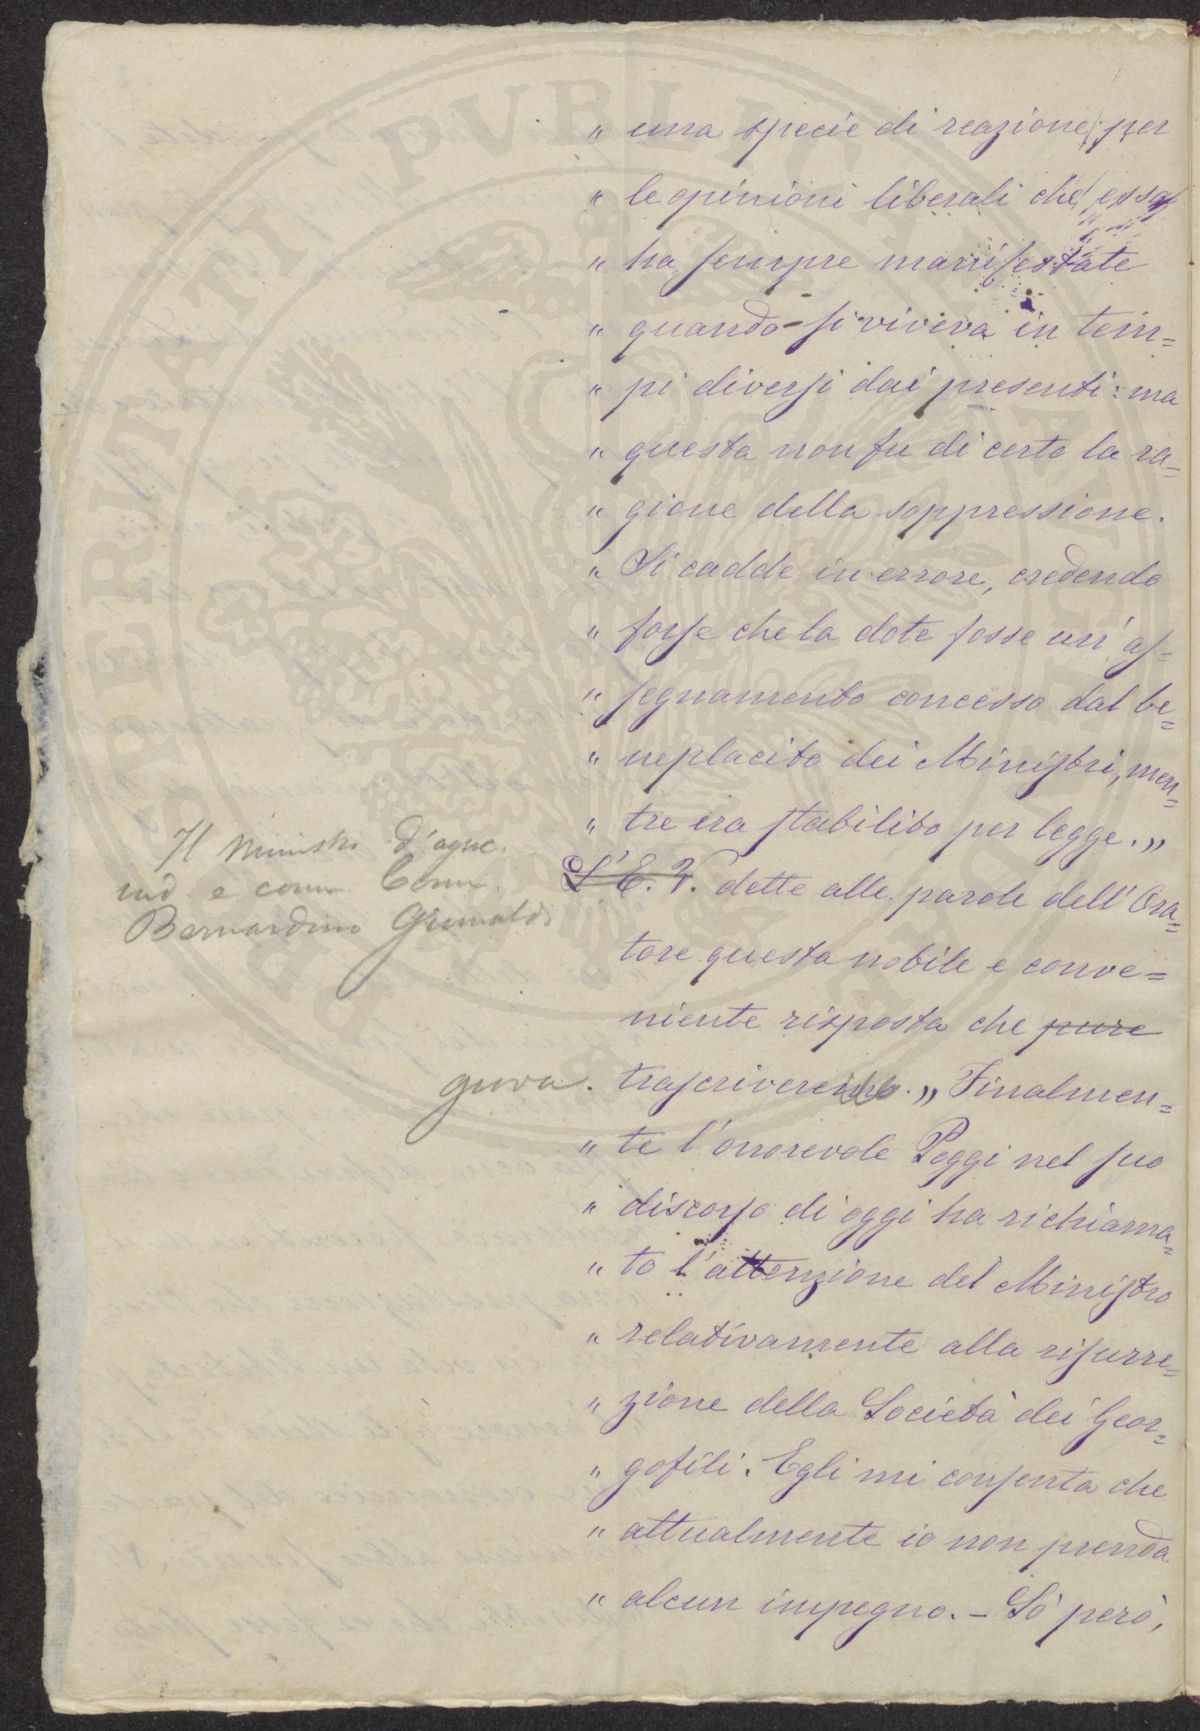 " una specie di reazione, per
" le opinioni liberali che, essa
" ha sempre manifestate
" quando si viveva in tem=
" pi diversi dai presenti: ma
" questa non fu di certo la ra=
" gione della soppressione.
" Si cadde in errore, credendo
" forse che la dote fosse un' as=
" segnamento concesso dal be=
" neplacito dei Ministri, men=
" tre era stabilito per legge. „
Il Ministro d'agric.
ind. e comm. Comm.
Bernardino Grimaldi
L' E. V. dette alle parole dell' Ora=
tore questa nobile e conve=
niente risposta che pure
trascriveremo. „ Finalmen=
" te l'onorevole Poggi nel suo
" discorso di oggi ha richiama=
" to l'attenzione del Ministro
" relativamente alla risurre=
" zione della Società dei Geor=
" gofili. Egli mi consenta che
" attualmente io non prenda
" alcun impegno. – Sò però,